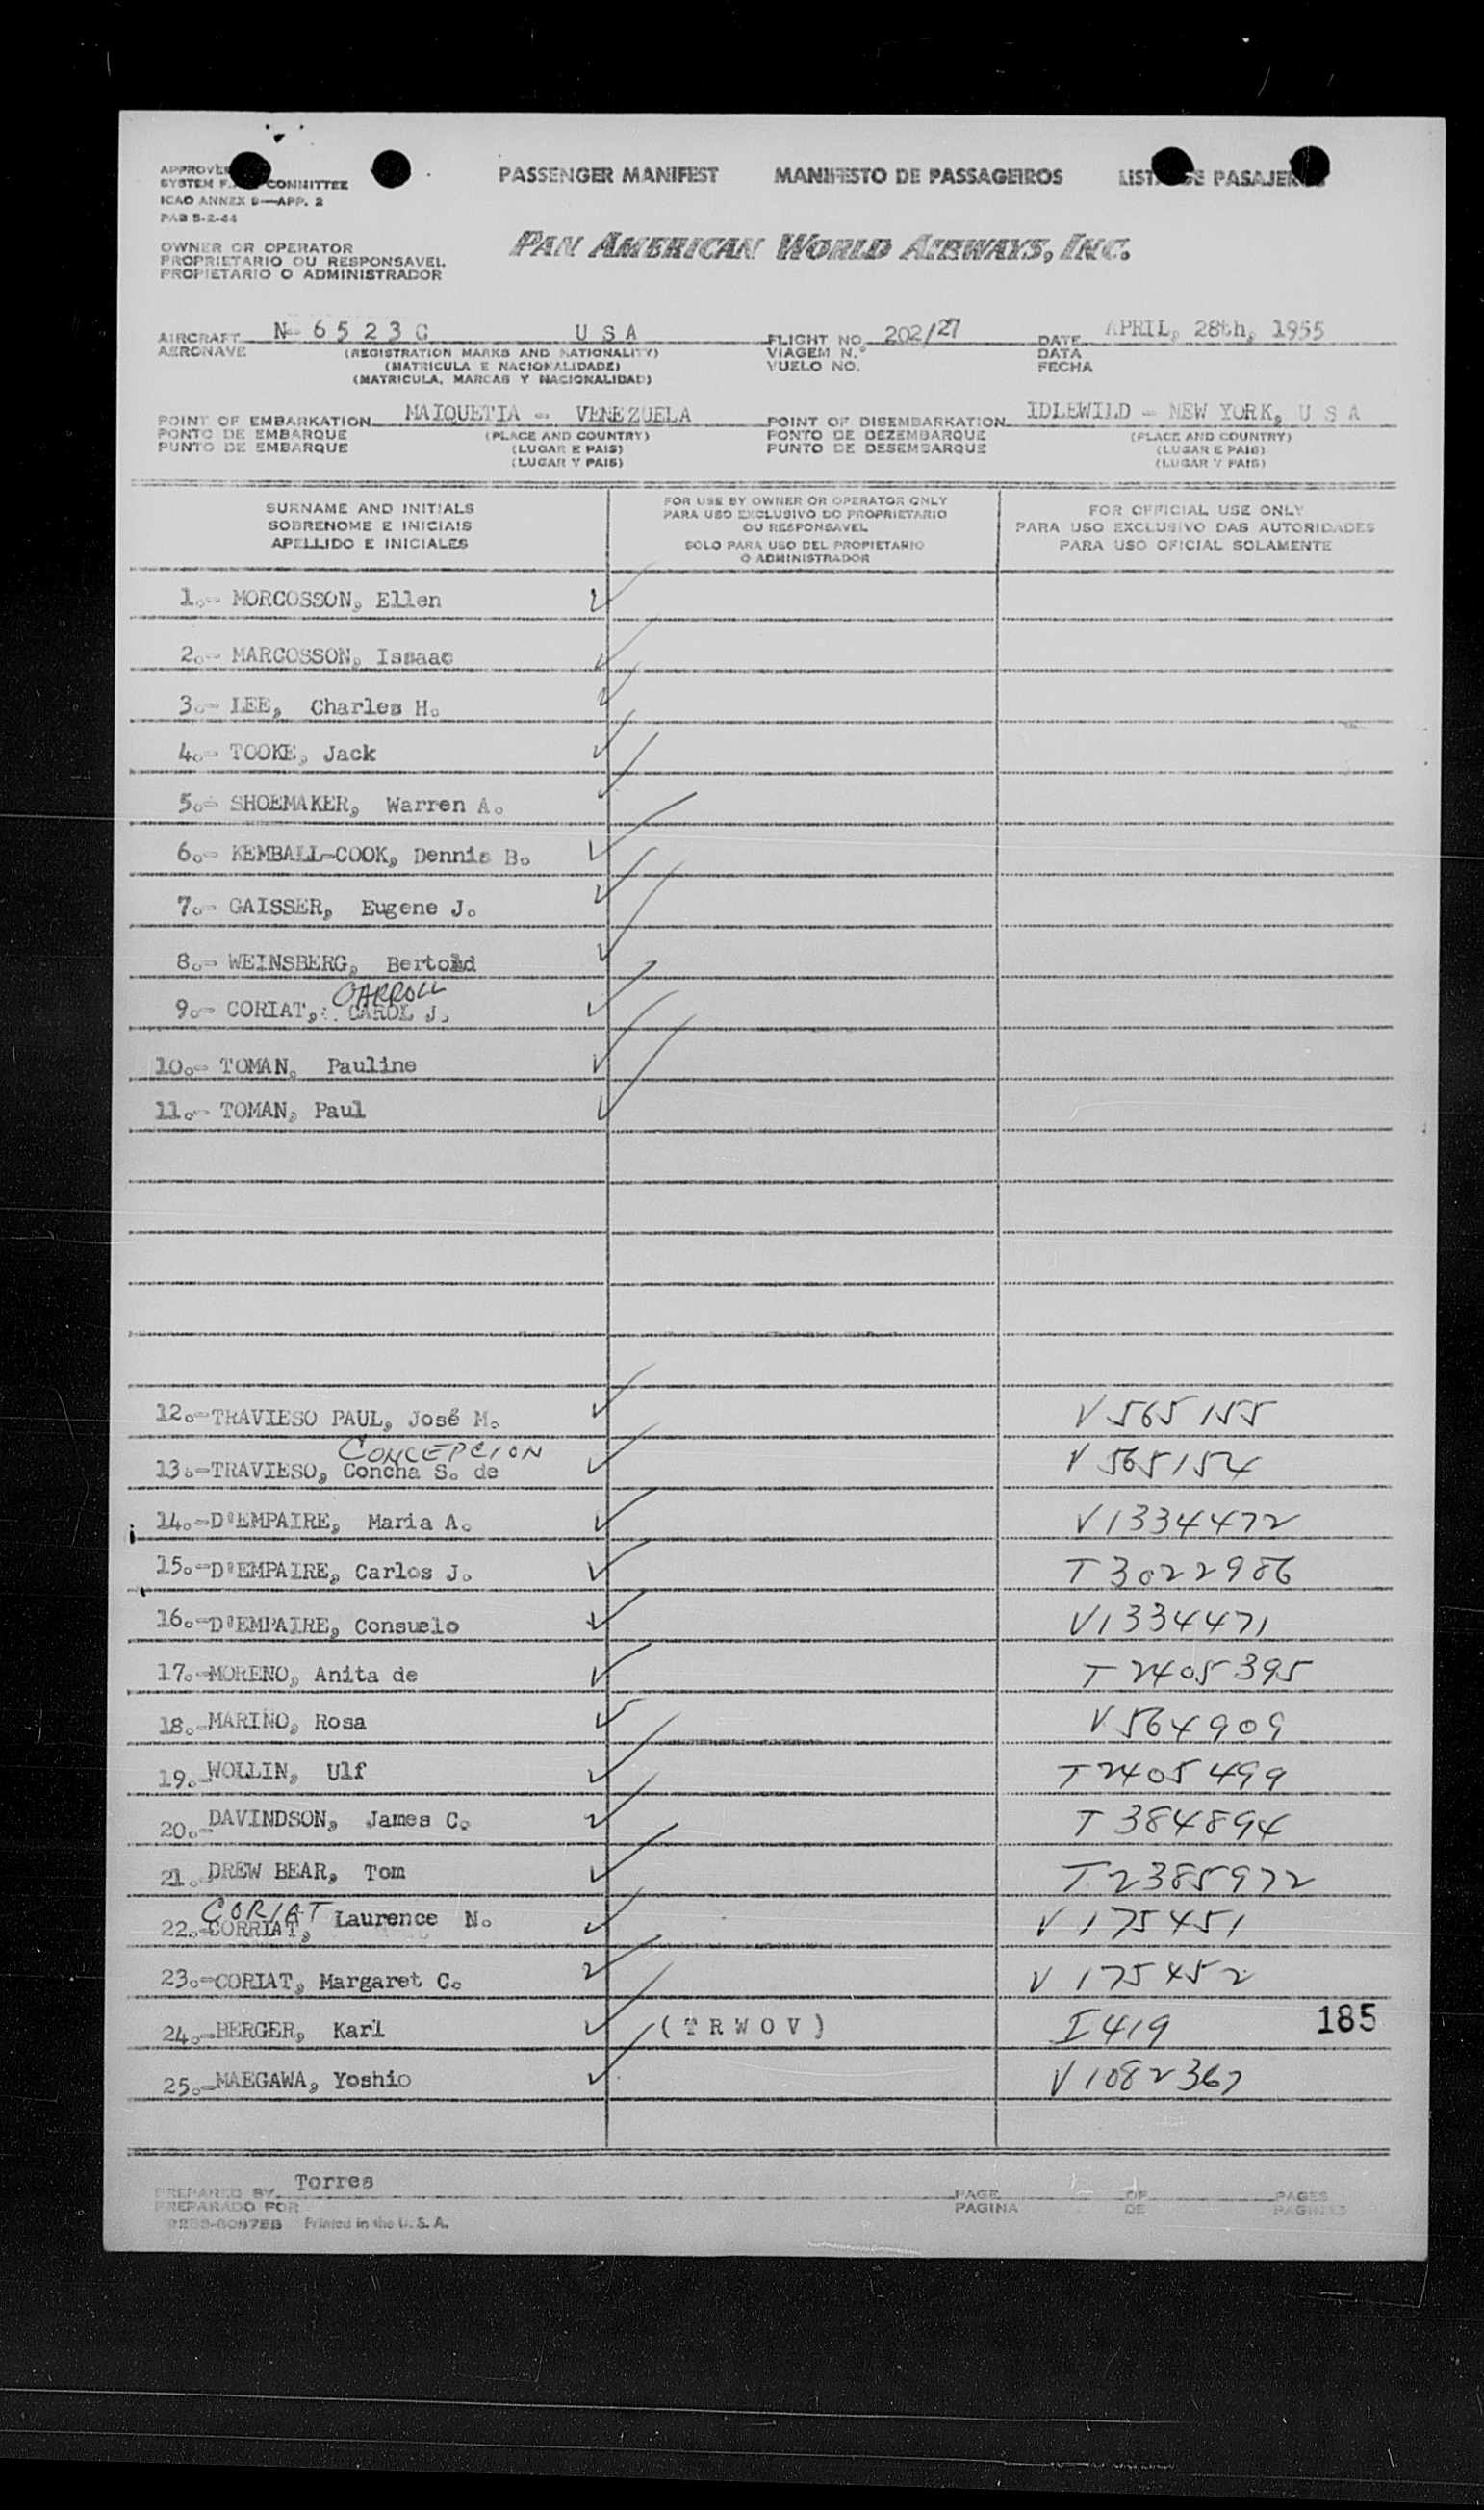 PASSENGER MANIFEST MANIFESTO DE PASSAGEIROS LISTA DE PASAJEROS
APPROVED
SYSTEM COMMITTEE
ICAO ANNEX 9—APP. 2
PAB 5-2-44
OWNER OR OPERATOR
PROPRIETARIO OU RESPONSAVEL
PROPIETARIO O ADMINISTRADOR
PAN AMERICAN WORLD AIRWAYS, INC.
AIRCRAFT N- 6 5 2 3 C U S A FLIGHT NO. 202/27 DATE APRIL, 28th, 1955
AERONAVE (REGISTRATION MARKS AND NATIONALITY) VIAGEM N.º DATA
(MATRICULA E NACIONALIDADE) VUELO NO. FECHA
(MATRICULA, MARCAS Y NACIONALIDAD)
POINT OF EMBARKATION MAIQUETIA - VENEZUELA POINT OF DISEMBARKATION IDLEWILD - NEW YORK, U S A
PONTO DE EMBARQUE (PLACE AND COUNTRY) PONTO DE DEZEMBARQUE (PLACE AND COUNTRY)
PUNTO DE EMBARQUE (LUGAR E PAIS) PUNTO DE DESEMBARQUE (LUGAR E PAIS)
(LUGAR Y PAIS) (LUGAR Y PAIS)
SURNAME AND INITIALS
SOBRENOME E INICIAIS
APELLIDO E INICIALES
FOR USE BY OWNER OR OPERATOR ONLY
PARA USO EXCLUSIVO DO PROPRIETARIO
OU RESPONSAVEL
SOLO PARA USO DEL PROPIETARIO
O ADMINISTRADOR
FOR OFFICIAL USE ONLY
PARA USO EXCLUSIVO DAS AUTORIDADES
PARA USO OFICIAL SOLAMENTE
1.- MORCOSSON, Ellen
2.- MARCOSSON, Issaac
3.- LEE, Charles H.
4.- TOOKE, Jack
5.- SHOEMAKER, Warren A.
6.- KEMBALL-COOK, Dennis B.
7.- GAISSER, Eugene J.
8.- WEINSBERG, Bertold
CARROLL
9.- CORIAT, CAROL J.
10.- TOMAN, Pauline
11.- TOMAN, Paul
12.-TRAVIESO PAUL, José M. V 565155
CONCEPCION
13.-TRAVIESO, Concha S. de V 565154
14.-D'EMPAIRE, Maria A. V1334472
15.-D'EMPAIRE, Carlos J. T 3022986
16.-D'EMPAIRE, Consuelo V1334471
17.-MORENO, Anita de T 2405395
18.-MARIÑO, Rosa V564909
19.-WOLLIN, Ulf T2405499
20.-DAVINDSON, James C. T 384894
21.-DREW BEAR, Tom T2385972
CORIAT
22.-CORRIAT, Laurence N. V 175451
23.-CORIAT, Margaret C. V 175452
24.-BERGER, Karl ( T R W O V ) I 419 185
25.-MAEGAWA, Yoshio V1082367
PREPARED BY Torres PAGE OF PAGES
PREPARADO POR PAGINA DE PAGINAS
Printed in the U. S. A.